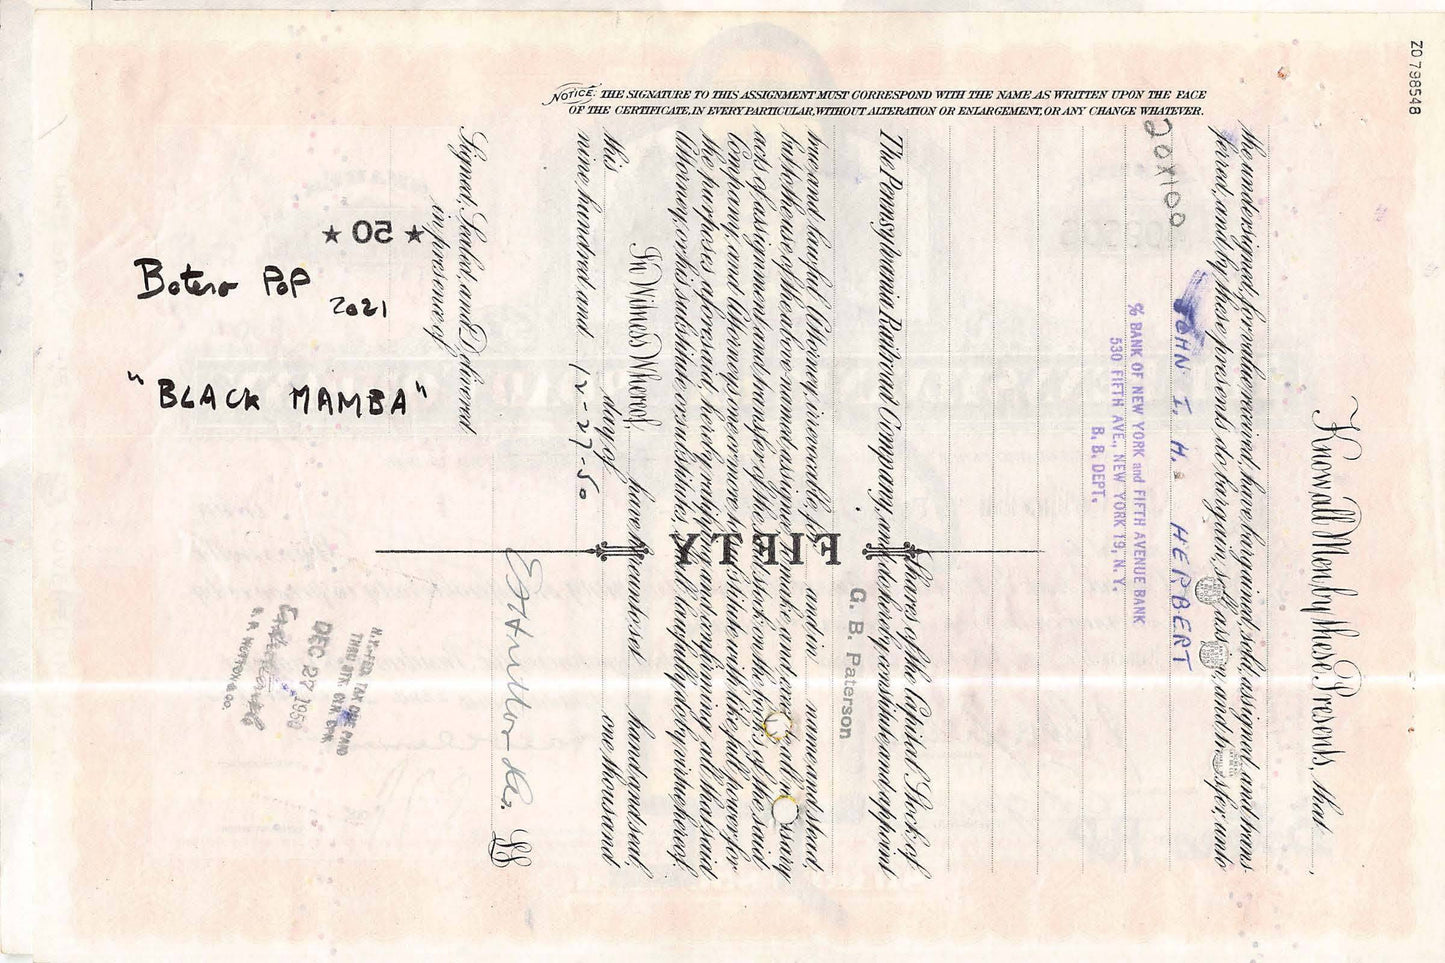 ZO 798548
NOTICE: THE SIGNATURE TO THIS ASSIGNMENT MUST CORRESPOND WITH THE NAME AS WRITTEN UPON THE FACE
OF THE CERTIFICATE, IN EVERY PARTICULAR, WITHOUT ALTERATION OR ENLARGEMENT, OR ANY CHANGE WHATEVER.
Know all Men by these Presents, that
the undersigned, for value received, have bargained, sold, assigned, and trans-
ferred, and by these presents do bargain, sell, assign, and transfer, unto
20X100
JOHN I. H. HERBERT
% BANK OF NEW YORK and FIFTH AVENUE BANK
530 FIFTH AVE., NEW YORK 19, N. Y.
B. B. DEPT.
Shares of the Capital Stock of
The Pennsylvania Railroad Company, and do hereby constitute and appoint
G. B. Paterson
true and lawful Attorney, irrevocable, for and in name and stead
but to the use of the above named assignee to make and necessary
acts of assignment and transfer of the said stock on the books of the said
Company, and Attorneys one or more to substitute with like full power for
the purposes aforesaid, hereby ratifying and confirming all that said
Attorney or his substitute or substitutes, shall lawfully do by virtue hereof.
FIFTY
In Witness Whereof, have hereunto set hand and seal,
this day of one thousand
nine hundred and 12-27-50
Signed, Sealed, and Delivered
in presence of
LS
★ 50 ★
Botero PoP
2021
"BLACK MAMBA"
DEC 27 1950